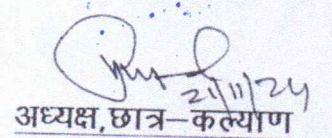 21/11/24
अध्यक्ष, छात्र–कल्याण